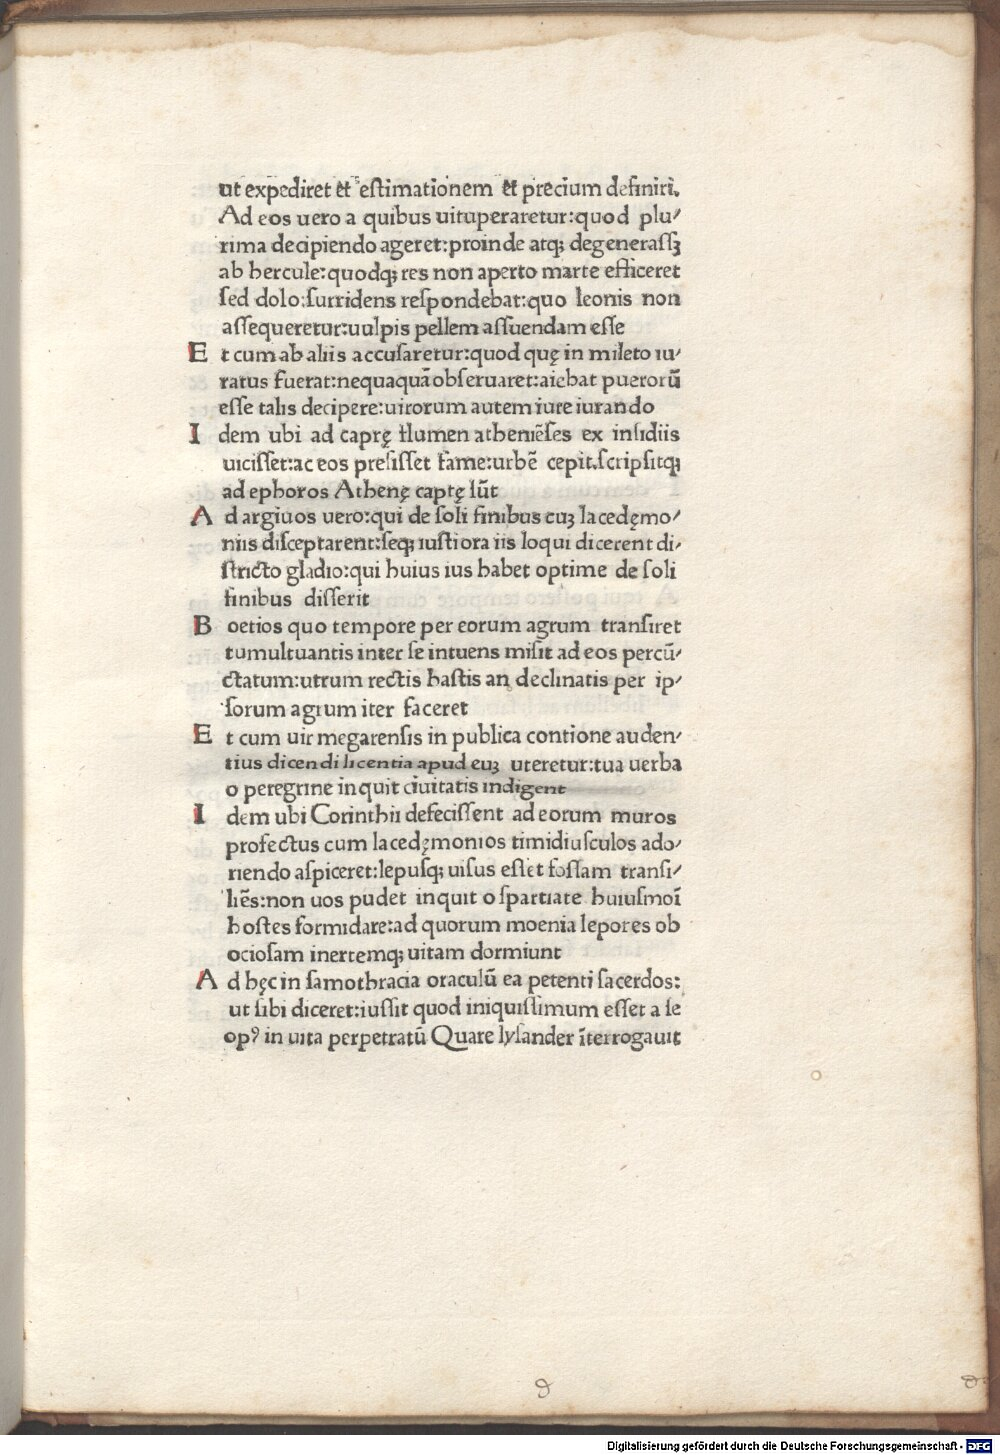 ut expediret et estimationem et precium definiri.
Ad eos uero a quibus uituperaretur:quod plu⸗
rima decipiendo ageret:proinde atq; degenerassꝫ
ab hercule:quodq; res non aperto marte efficeret
sed dolo:surridens respondebat:quo leonis non
assequeretur:uulpis pellem assuendam esse
Et cum ab aliis accusaretur:quod quę in mileto iu⸗
ratus fuerat:nequaquã obseruaret:aiebat puerorũ
esse talis decipere:uirorum autem iure iurando
Idem ubi ad caprę flumen atheniẽses ex insidiis
uicisset:ac eos presisset fame:urbẽ cepit.scripsitq;
ad ephoros Athenę captę sũt
Ad argiuos uero:qui de soli finibus euꝫ lacedęmo⸗
niis disceptarent:seq; iustiora iis loqui dicerent di⸗
stricto gladio:qui huius ius habet optime de soli
finibus disserit
Boetios quo tempore per eorum agrum transiret
tumultuantis inter se intuens misit ad eos percũ⸗
ctatum:utrum rectis hastis an declinatis per ip⸗
sorum agrum iter faceret
Et cum uir megarensis in publica contione auden⸗
tius dicendi licentia apud euꝫ uteretur:tua uerba
o peregrine inquit ciuitatis indigent
Idem ubi Corinthii defecissent ad eorum muros
profectus cum lacedęmonios timidiusculos ado⸗
riendo aspiceret:lepusq; uisus esset fossam transi⸗
liẽs:non uos pudet inquit o spartiate huiusmoĩ
hostes formidare:ad quorum moenia lepores ob
ociosam inertemq; uitam dormiunt
Ad hęc in samothracia oraculũ ea petenti sacerdos:
ut sibi diceret:iussit quod iniquissimum esset a se
opꝰ in uita perpetratũ Quare lysander ĩterrogauit
Digitalisierung gefördert durch die Deutsche Forschungsgemeinschaft - DFG